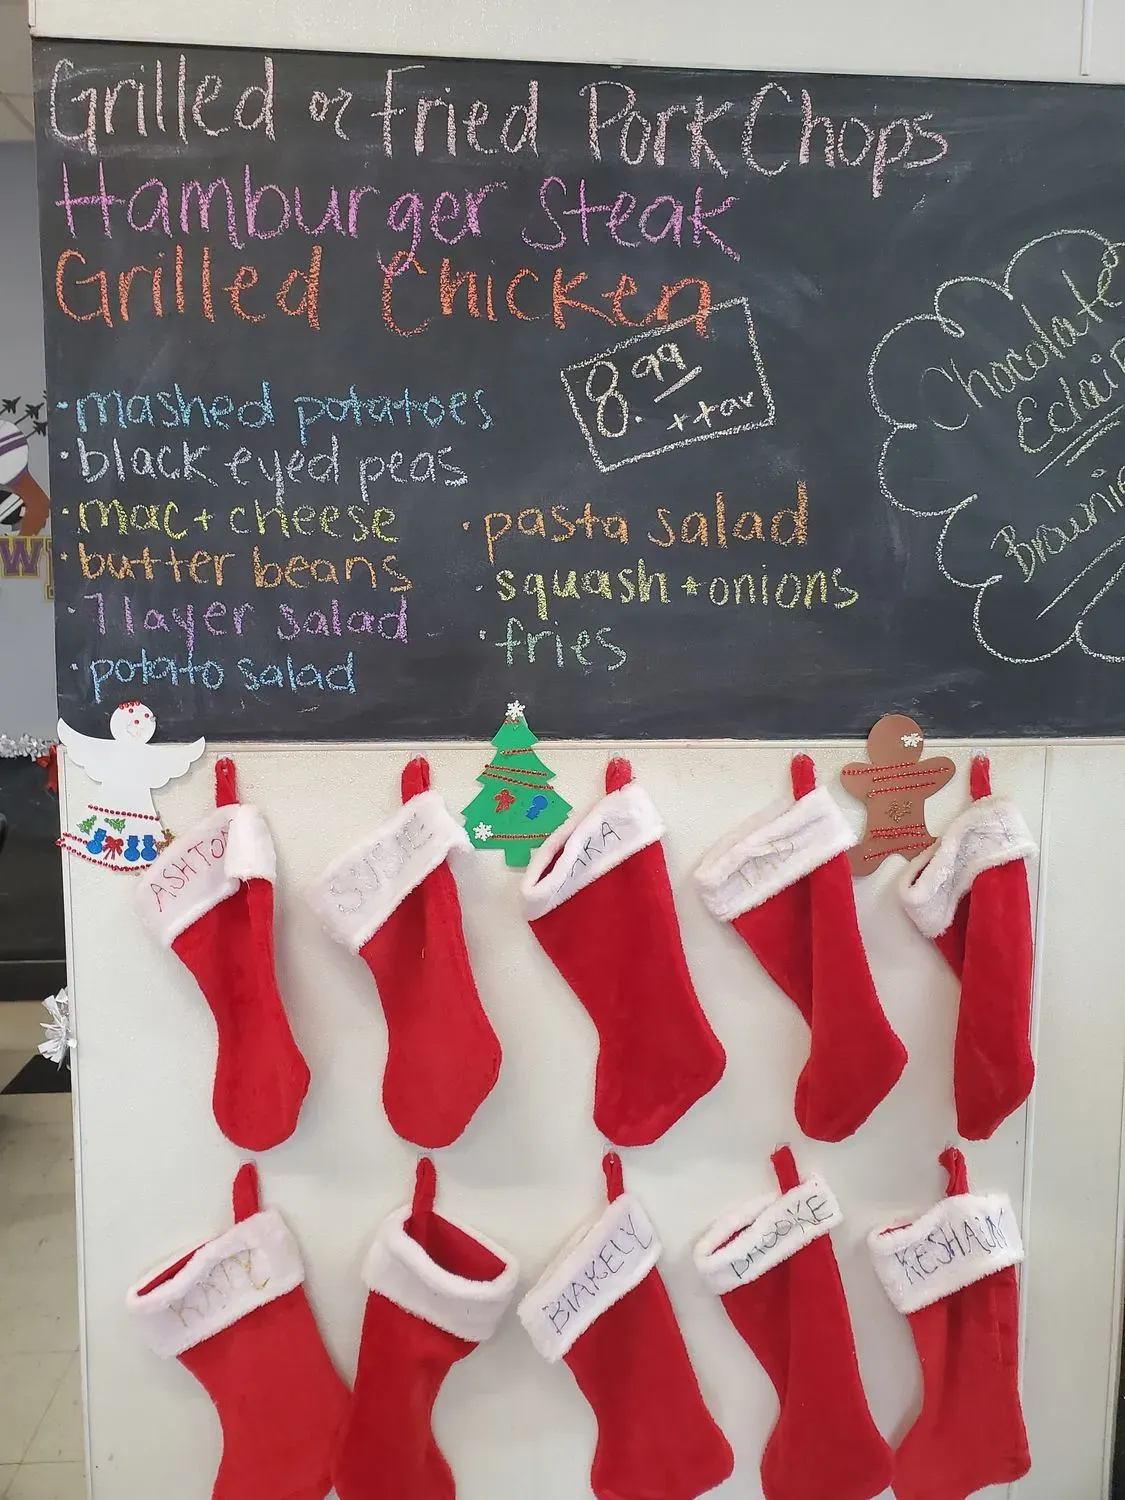 Grilled or Fried Pork Chops
Hamburger Steak
Grilled Chicken
8.99
++tax
• mashed potatoes
• black eyed peas
• mac + cheese
• butter beans
• 7 layer salad
• potato salad
• pasta salad
• squash + onions
• fries
Chocolate
Eclair
Brownie
ASHTON
SUSIE
KATY
BlAKELY
BROOKE
KESHAUN